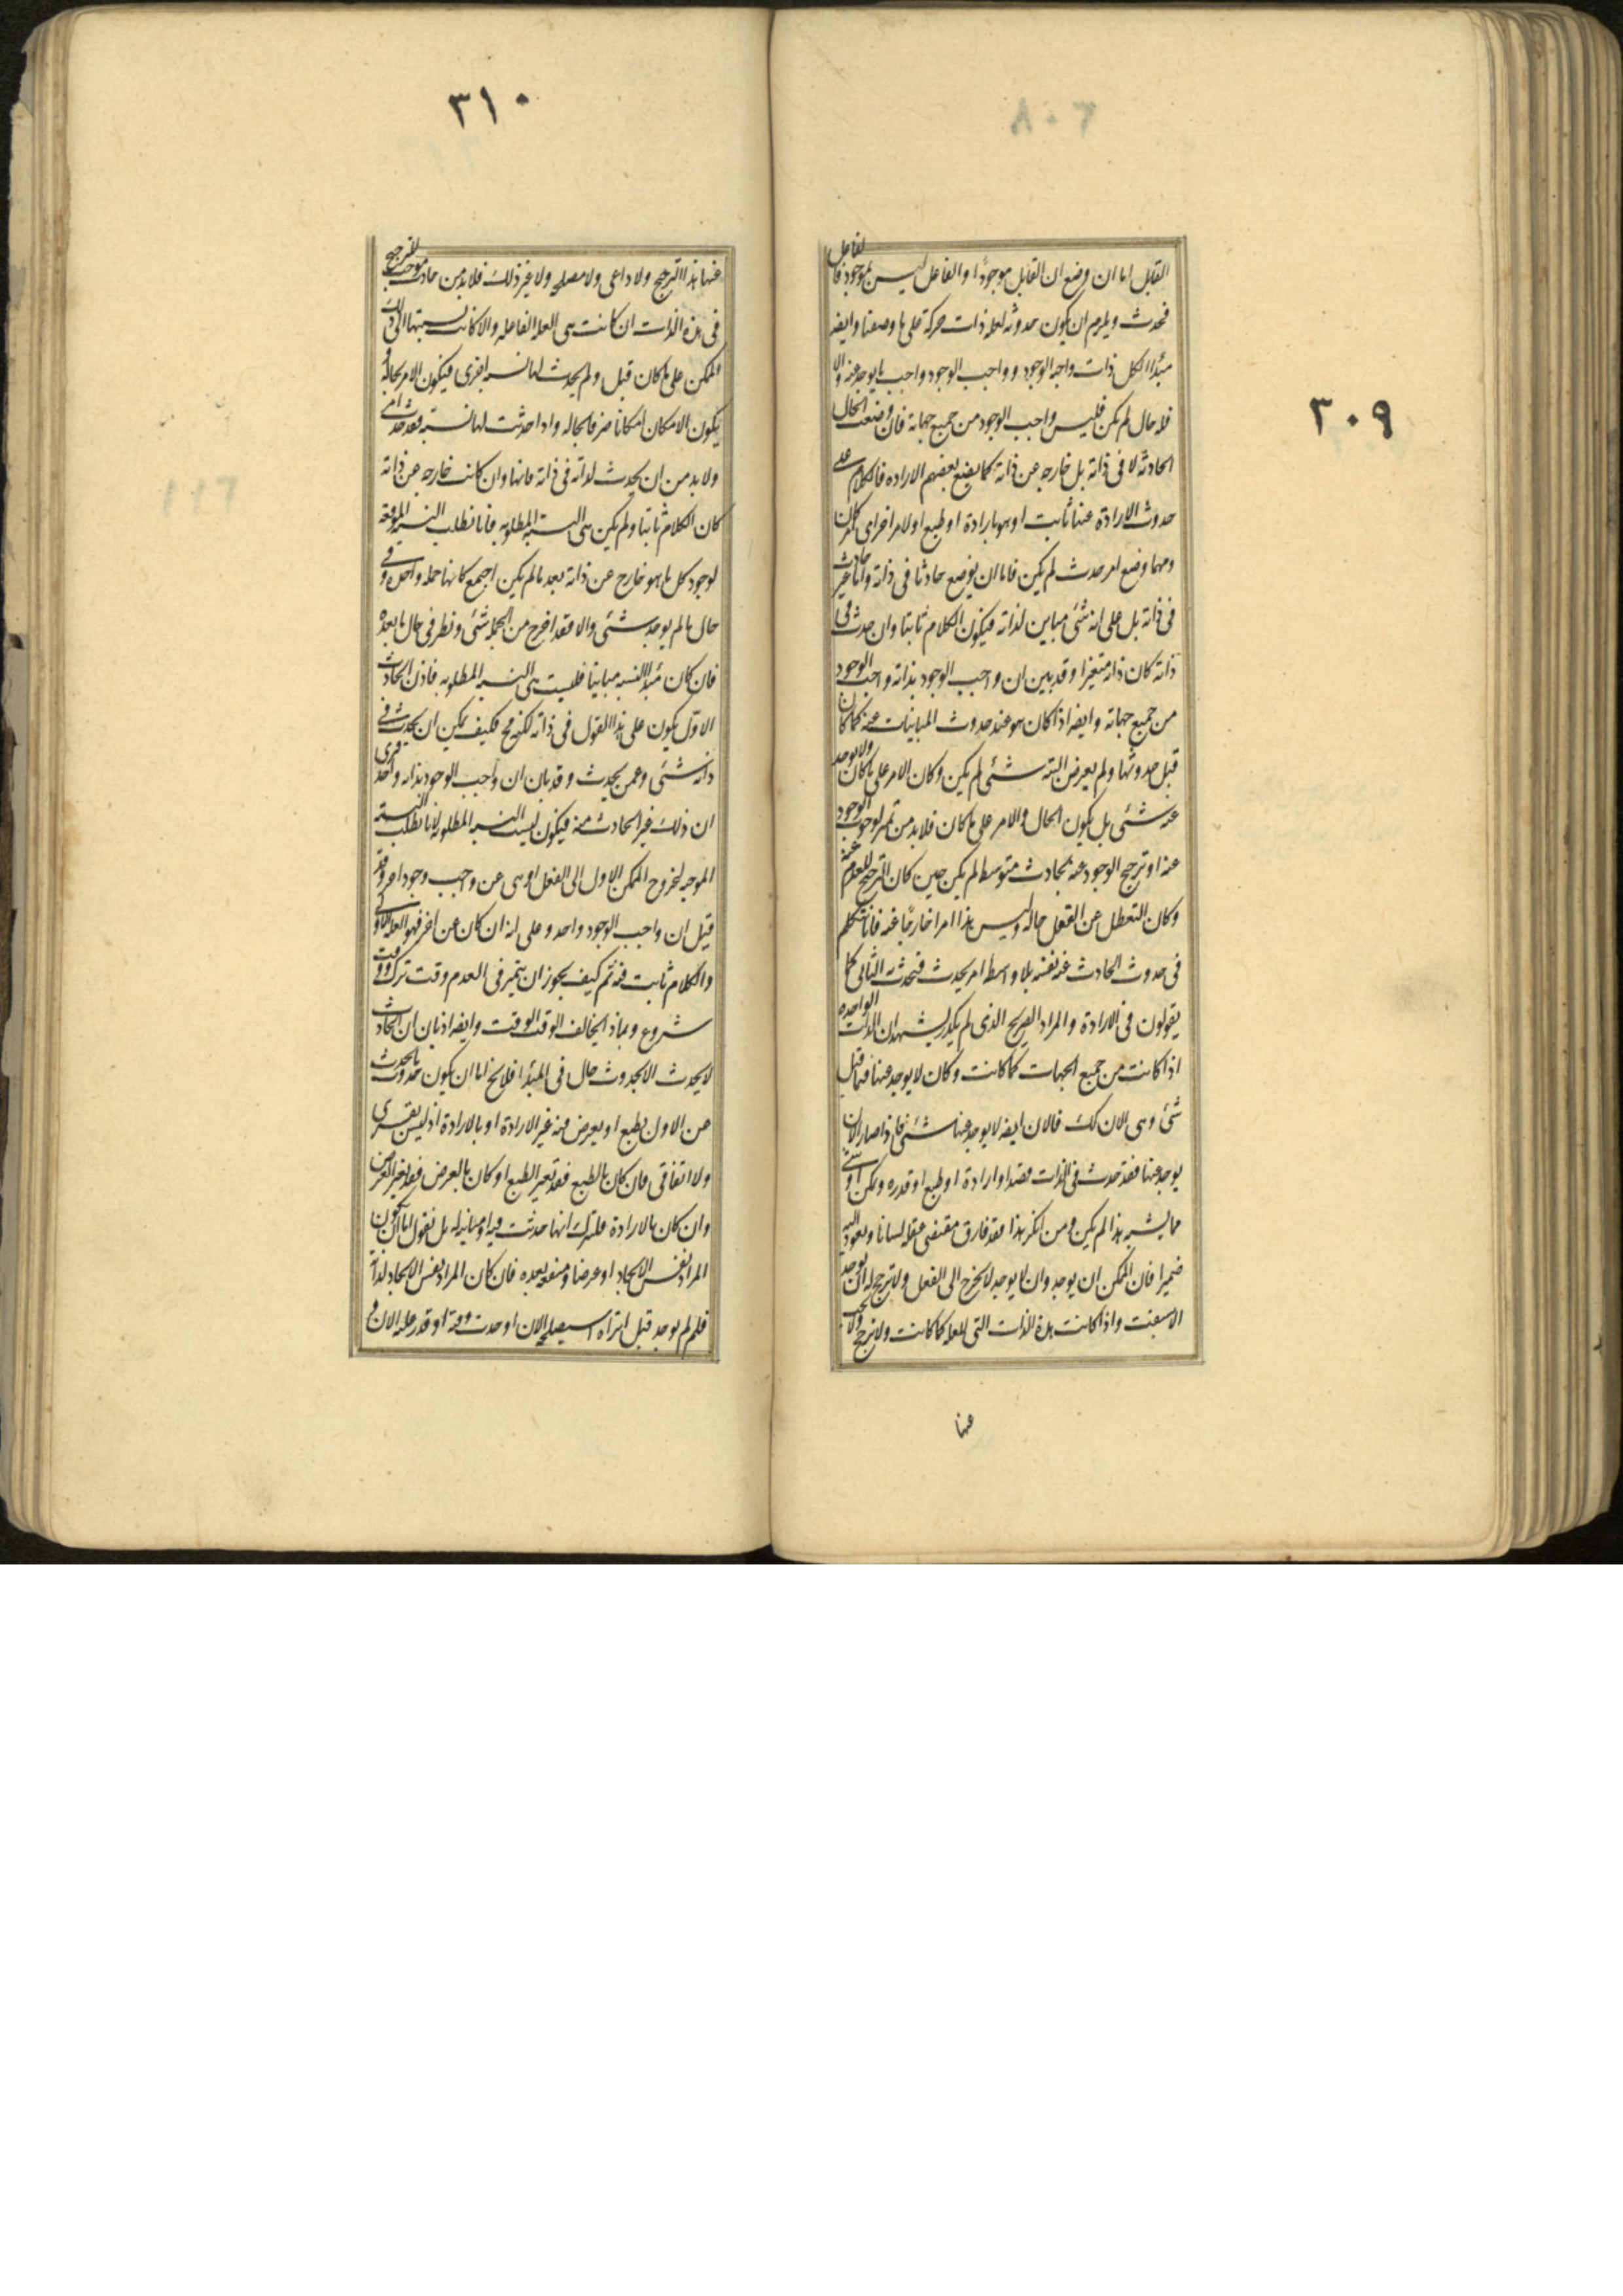 ٣٠٩
القابل اما ان وضع ان القابل موجودًا والفاعل ليس بموجود فالفاعل
فحدث ويلزم ان يكون حدوثه لعلة ذات حركة على ما وصفنا وايضه
مبدأ الكل ذات واجبة الوجود وواجب الوجود واجب ما يوجد عنه والا
فله حال لم تكن فليس واجب الوجود من جميع جهاته فان وضعت الحال
الحادثة لا فى ذاته بل خارجه عن ذاته كما يضع بعضهم الاراده فالكلام على
حدوث الارادة عنها ثابت او هو بارادة او طبع او لامر اخر اى امر كان
ومهما وضع امر حدث لم يكن فاما ان يوضع حادثا فى ذاته واما غير حادث
فى ذاته بل على انه شئ مباين لذاته فيكون الكلام ثابتا وان حدث فى
ذاته كان ذاته متغيرا وقد بين ان واجب الوجود بذاته واجب الوجود
من جميع جهاته وايضه اذا كان هو عند حدوث المباينات عنه كما كان
قبل حدوثها ولم يعرض البته شئ لم يكن وكان الامر على ما كان ولا يوجد
عنه شئ بل يكون الحال والامر على ما كان فلابد من تميز لوجوب الوجود
عنه او ترجح الوجود عنه بحادث متوسط لم يكن حين كان الترجح للعدم عنه
وكان التعطل عن الفعل حاله وليس هذا امرا خارجًا عنه فانا نتكلم
فى حدوث الحادث عنه نفسه بلا واسطة امر يحدث فيحدث به الثانى كما
يقولون فى الارادة والمراد الصريح الذى لم يكدر يشهد ان الذات الواحده
اذا كانت من جميع الجهات كما كانت وكان لا يوجد عنها فيما قبل
شئ وهى الان كك فالان ايضه لا يوجد عنها شئ فاذا صار الان
يوجد عنها فقد حدث فى الذات قصد او ارادة او طبع او قدره وتمكن او شئ
مما يشبه هذا لم يكن ومن انكر هذا فقد فارق مقتضى عقله لسانا ويعود اليه
ضميرا فان الممكن ان يوجد وان لا يوجد لا يخرج الى الفعل ولا يترجح له ان يوجد
الا بسبب واذا كانت هذه الذات التى للعلة كما كانت ولا ترجح ولا يجب
عنها
٣١٠
عنها هذا الترجح ولا داعى ولا مصلحه ولا غير ذلك فلابد من حادث موجب للترجيح
فى هذه الذات ان كانت هى العلة الفاعله والا كانت نسبتها الى ذلك
الممكن على ما كان قبل ولم يحدث لها نسبة اخرى فيكون الامر بحاله و
يكون الامكان امكانا صرفا بحاله واذا حدثت لها نسبة فقد حدث امر
ولابد من ان يحدث لذاته فى ذاته فانها وان كانت خارجه عن ذاته
كان الكلام ثابتا ولم يكن هى النسبة المطلوبه فانا نطلب النسبة الموقعة
لوجود كل ما هو خارج عن ذاته بعد ما لم يكن اجمع كانها جمله واحدة وفى
حال ما لم يوجد شئ والا فقد اخرج من الجملة شئ ونظر فى حال ما بعده
فان كان مبدأ النسبه مباينًا فليست هى النسبة المطلوبه فاذن الحادث
الاوّل يكون على هذا القول فى ذاته لكنه مح فكيف يمكن ان يحدث فى
ذاته شئ وعمن يحدث وقد بان ان واجب الوجود بذاته واحد فترى
ان ذلك غير الحادث منه فيكون ليست النسبة المطلوبة لانا نطلب النسبة
الموجبة لخروج الممكن الاول الى الفعل او هى عن واجب وجود اخر وقد
قيل ان واجب الوجود واحد وعلى انه ان كان عن اخر فهو العلة الاولى
والكلام ثابت فيه ثم كيف يجوز ان يتميز فى العدم وقت ترك ووقت
شروع وبماذا يخالف الوقت الوقت وايضه اذ بان ان الحادث
لا يحدث الا بحدوث حال فى المبدأ فلا يخ اما ان يكون حدوث ما يحدث
عن الاول بطبع او بعرض فيه غير الارادة او بالارادة اذ ليس بقسرى
ولا اتفاقى فان كان بالطبع فقد تغير الطبع او كان بالعرض فقد تغير العرض
وان كان بالارادة فلنترك انها حدثت فيه او مباينة له بل نقول اما ان يكون
المراد نفس الايجاد او غرضا ومنفعه بعده فان كان المراد نفس الايجاد لذاته
فلم لم يوجد قبل اتراه استصلحه الان او حدث وقته او قدر عليه الان و